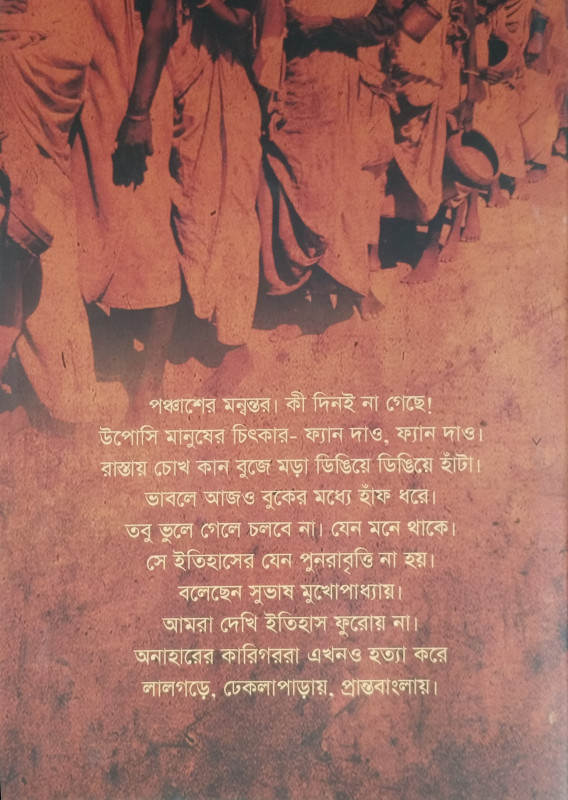 পঞ্চাশের মন্বন্তর। কী দিনই না গেছে!
উপোসি মানুষের চিৎকার- ফ্যান দাও, ফ্যান দাও।
রাস্তায় চোখ কান বুজে মড়া ডিঙিয়ে ডিঙিয়ে হাঁটা।
ভাবলে আজও বুকের মধ্যে হাঁফ ধরে।
তবু ভুলে গেলে চলবে না। যেন মনে থাকে।
সে ইতিহাসের যেন পুনরাবৃত্তি না হয়।
বলেছেন সুভাষ মুখোপাধ্যায়।
আমরা দেখি ইতিহাস ফুরোয় না।
অনাহারের কারিগররা এখনও হত্যা করে
লালগড়ে, ঢেকলাপাড়ায়, প্রান্তবাংলায়।